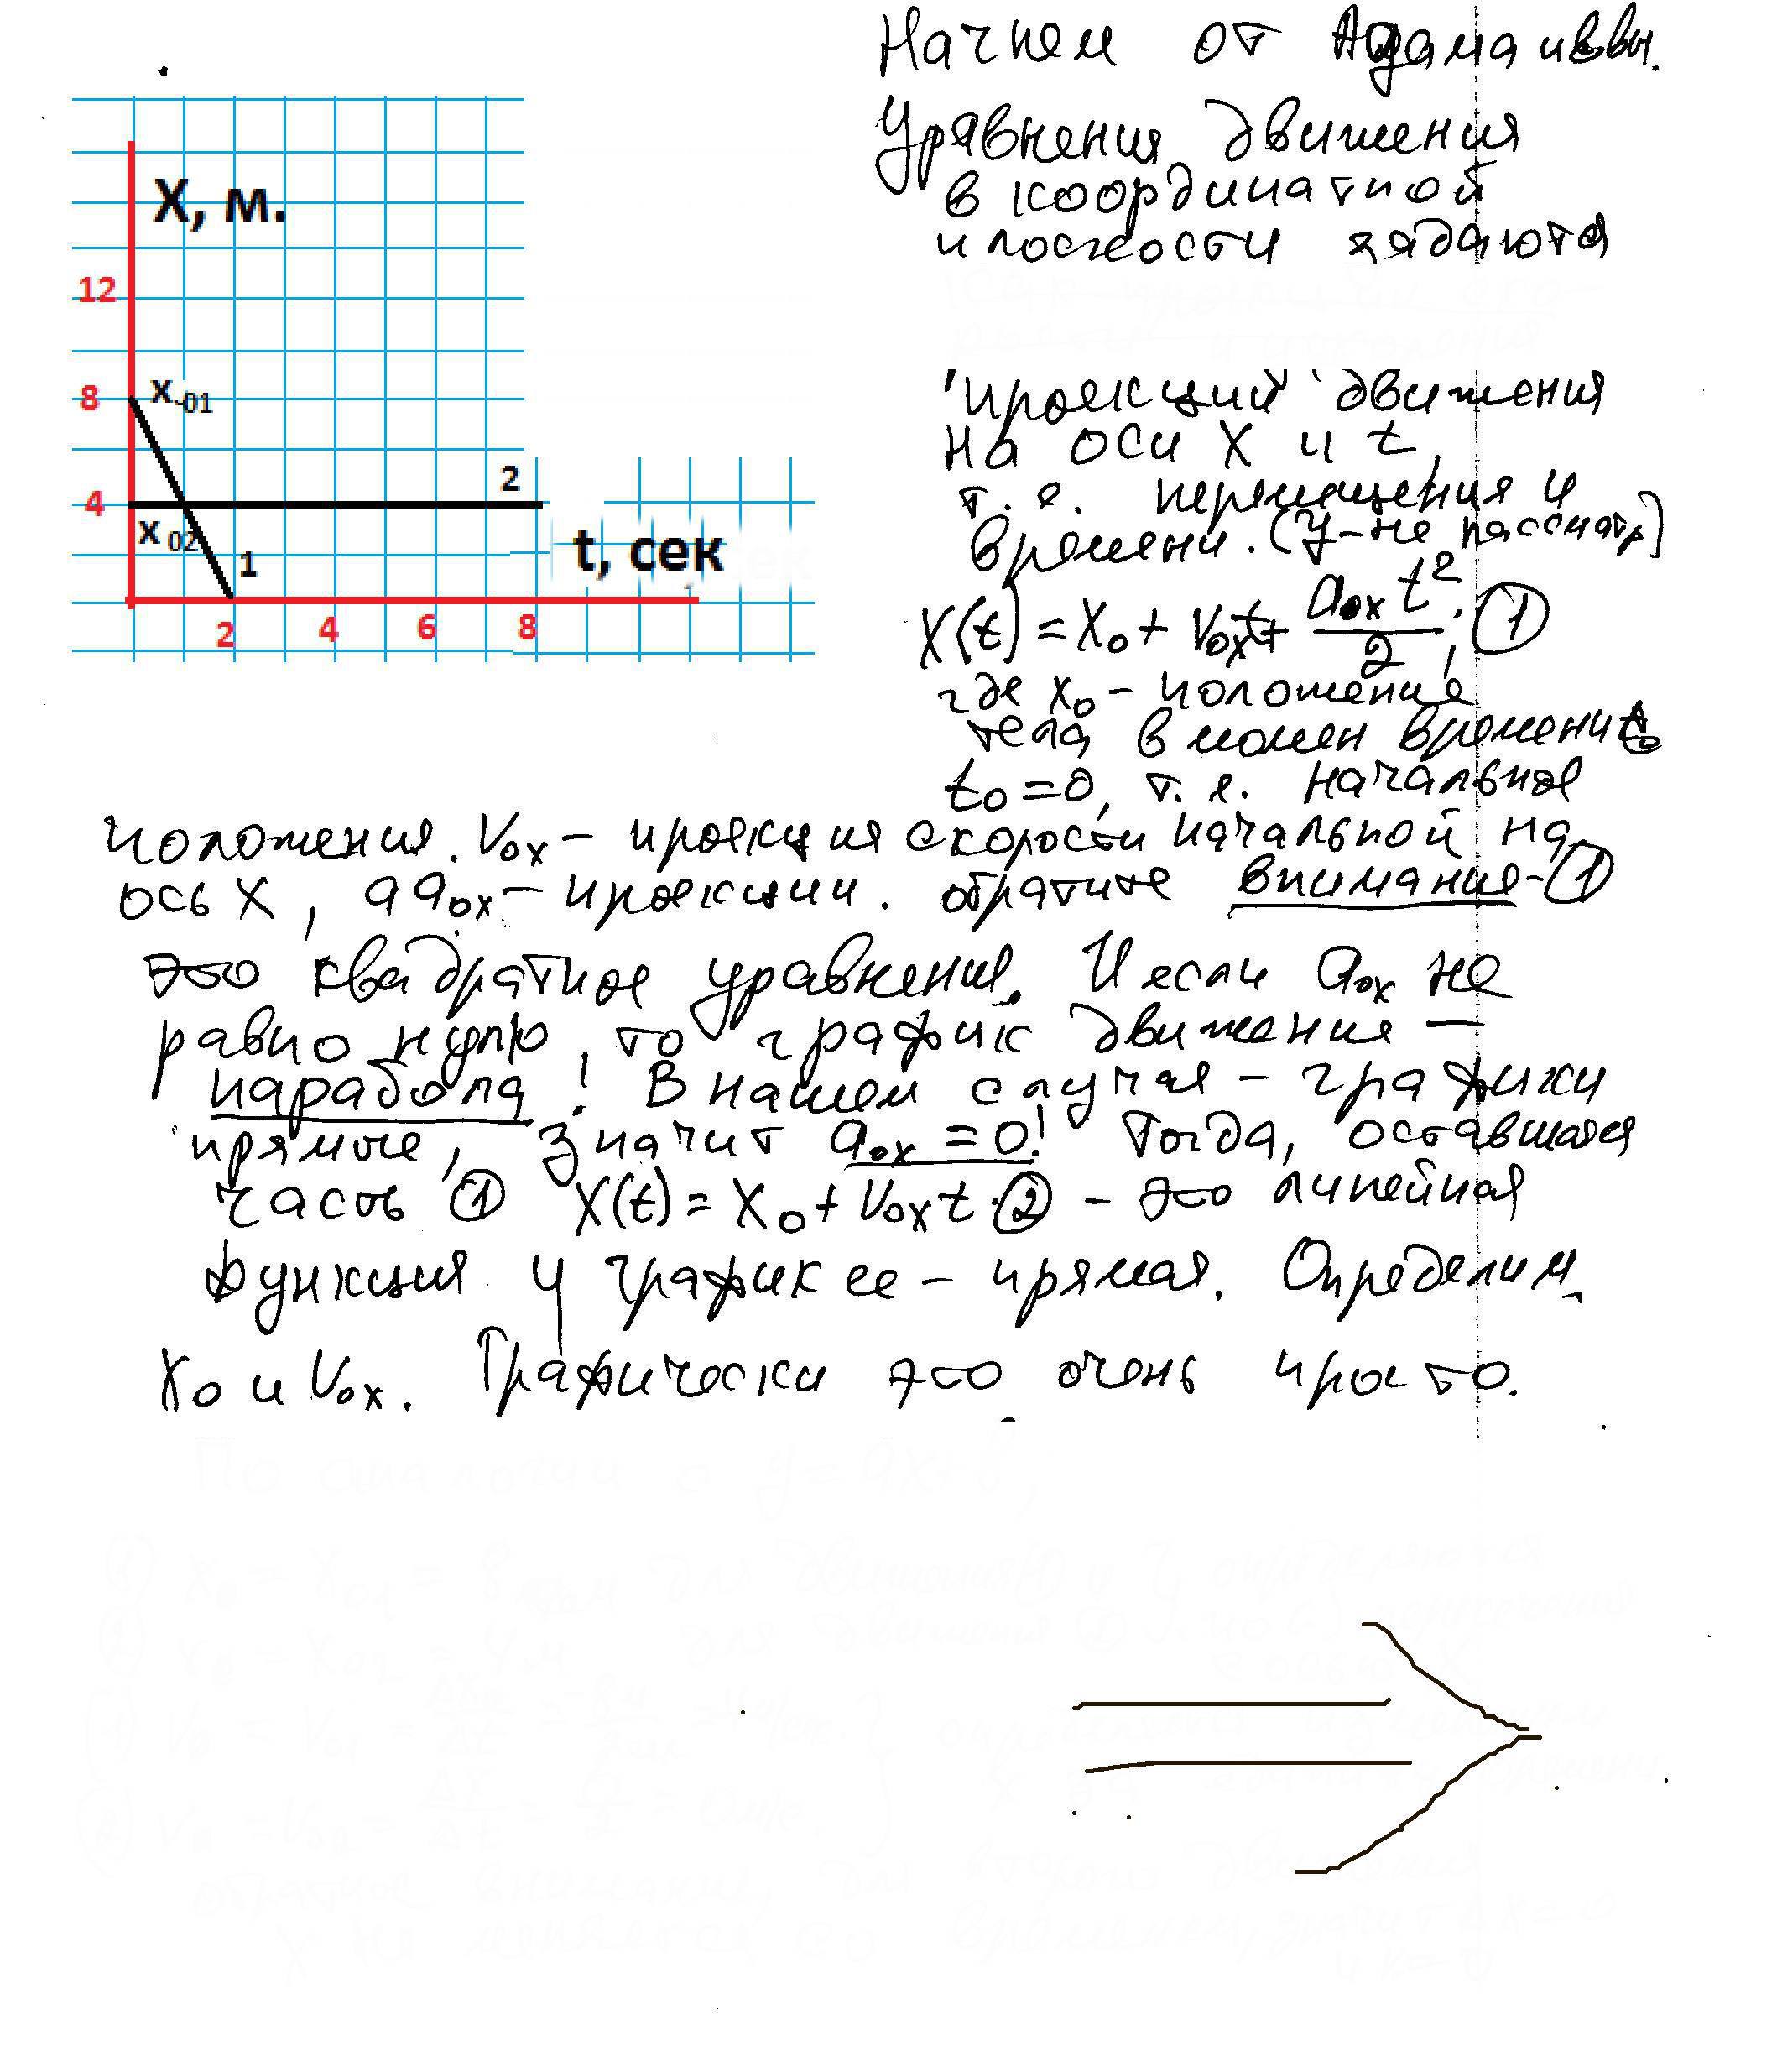 Начнем от Адама и Евы.
Уравнения движения
в координатной
плоскости задаются
проекций движения
на оси X и t,
т. е. перемещения и
времени. (y-не рассматр)
X(t) = X₀ + V₀ₓt + a₀ₓt²/2; ①
где x₀ - положение
тела в момен времени t₀
t₀ = 0, т. е. начальное
положения. V₀ₓ – проекция скорости начальной на
ось X, а a₀ₓ – проекции. обратите внимание - ①
это квадратное уравнение. И если a₀ₓ не
равно нулю, то график движения —
парабола! В нашем случае – графики
прямые, значит a₀ₓ = 0! Тогда, оставшаяся
часть ① X(t) = X₀ + V₀ₓt ② - это линейная
функция и график ее – прямая. Определим
X₀ и V₀ₓ. Графически это очень просто.
X, м.
12
8
x₀₁
4
2
x₀₂
1
t, сек
2 4 6 8